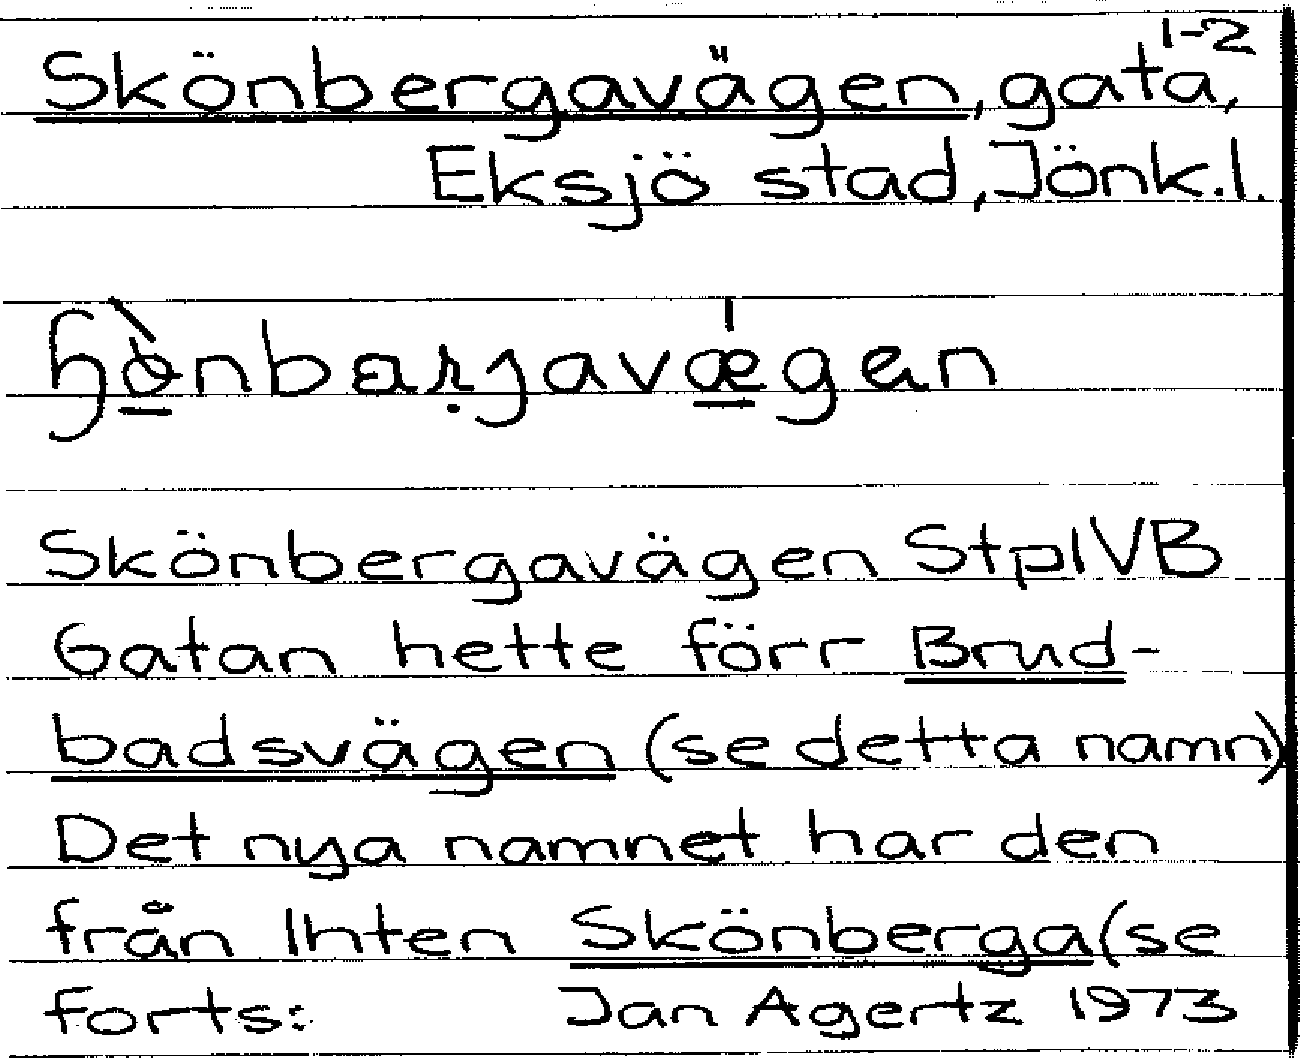 1-2
Skönbergavägen, gata,
Eksjö stad, Jönk.l.
Skönbergavägen StplVB
Gatan hette förr Brud-
badsvägen (se detta namn)
Det nya namnet har den
från lhten Skönberga (se
forts: Jan Agertz 1973